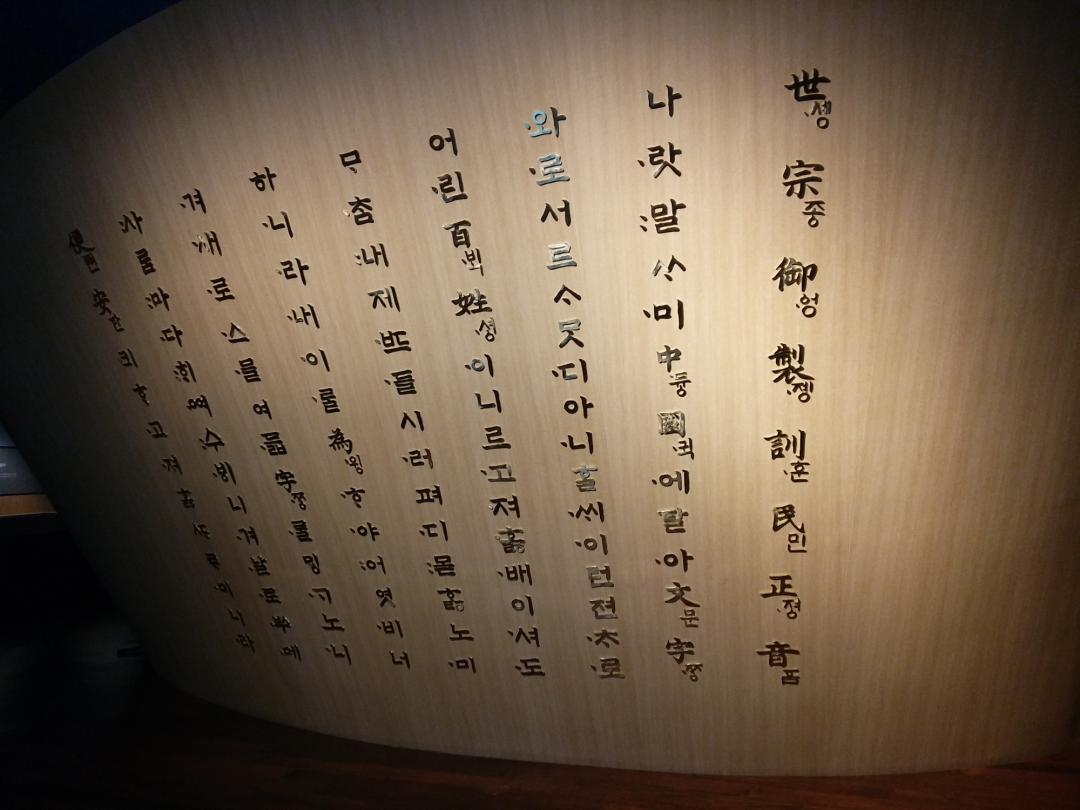 世솅宗종御엉製졩訓훈民민正졍音음
나랏말ᄊᆞ미中듕國귁에달아文문字ᄍᆞᆼ
와로서르ᄉᆞᄆᆞᆺ디아니ᄒᆞᆯᄊᆡ이런젼ᄎᆞ로
어린百ᄇᆡᆨ姓셩이니르고져호ᇙ배이셔도
ᄆᆞᄎᆞᆷ내제ᄠᅳ들시러펴디몯ᄒᆞᇙ노미
하니라내이ᄅᆞᆯ為윙ᄒᆞ야어엿비너
겨새로스믈여듧字ᄍᆞᆼᄅᆞᆯᄆᆡᇰᄀᆞ노니
사ᄅᆞᆷ마다ᄒᆡᅇᅧ수ᄫᅵ니겨날로ᄡᅮ메
便뼌安ᅙᅡᆫ킈ᄒᆞ고져ᄒᆞᇙᄯᆞᄅᆞ미니라